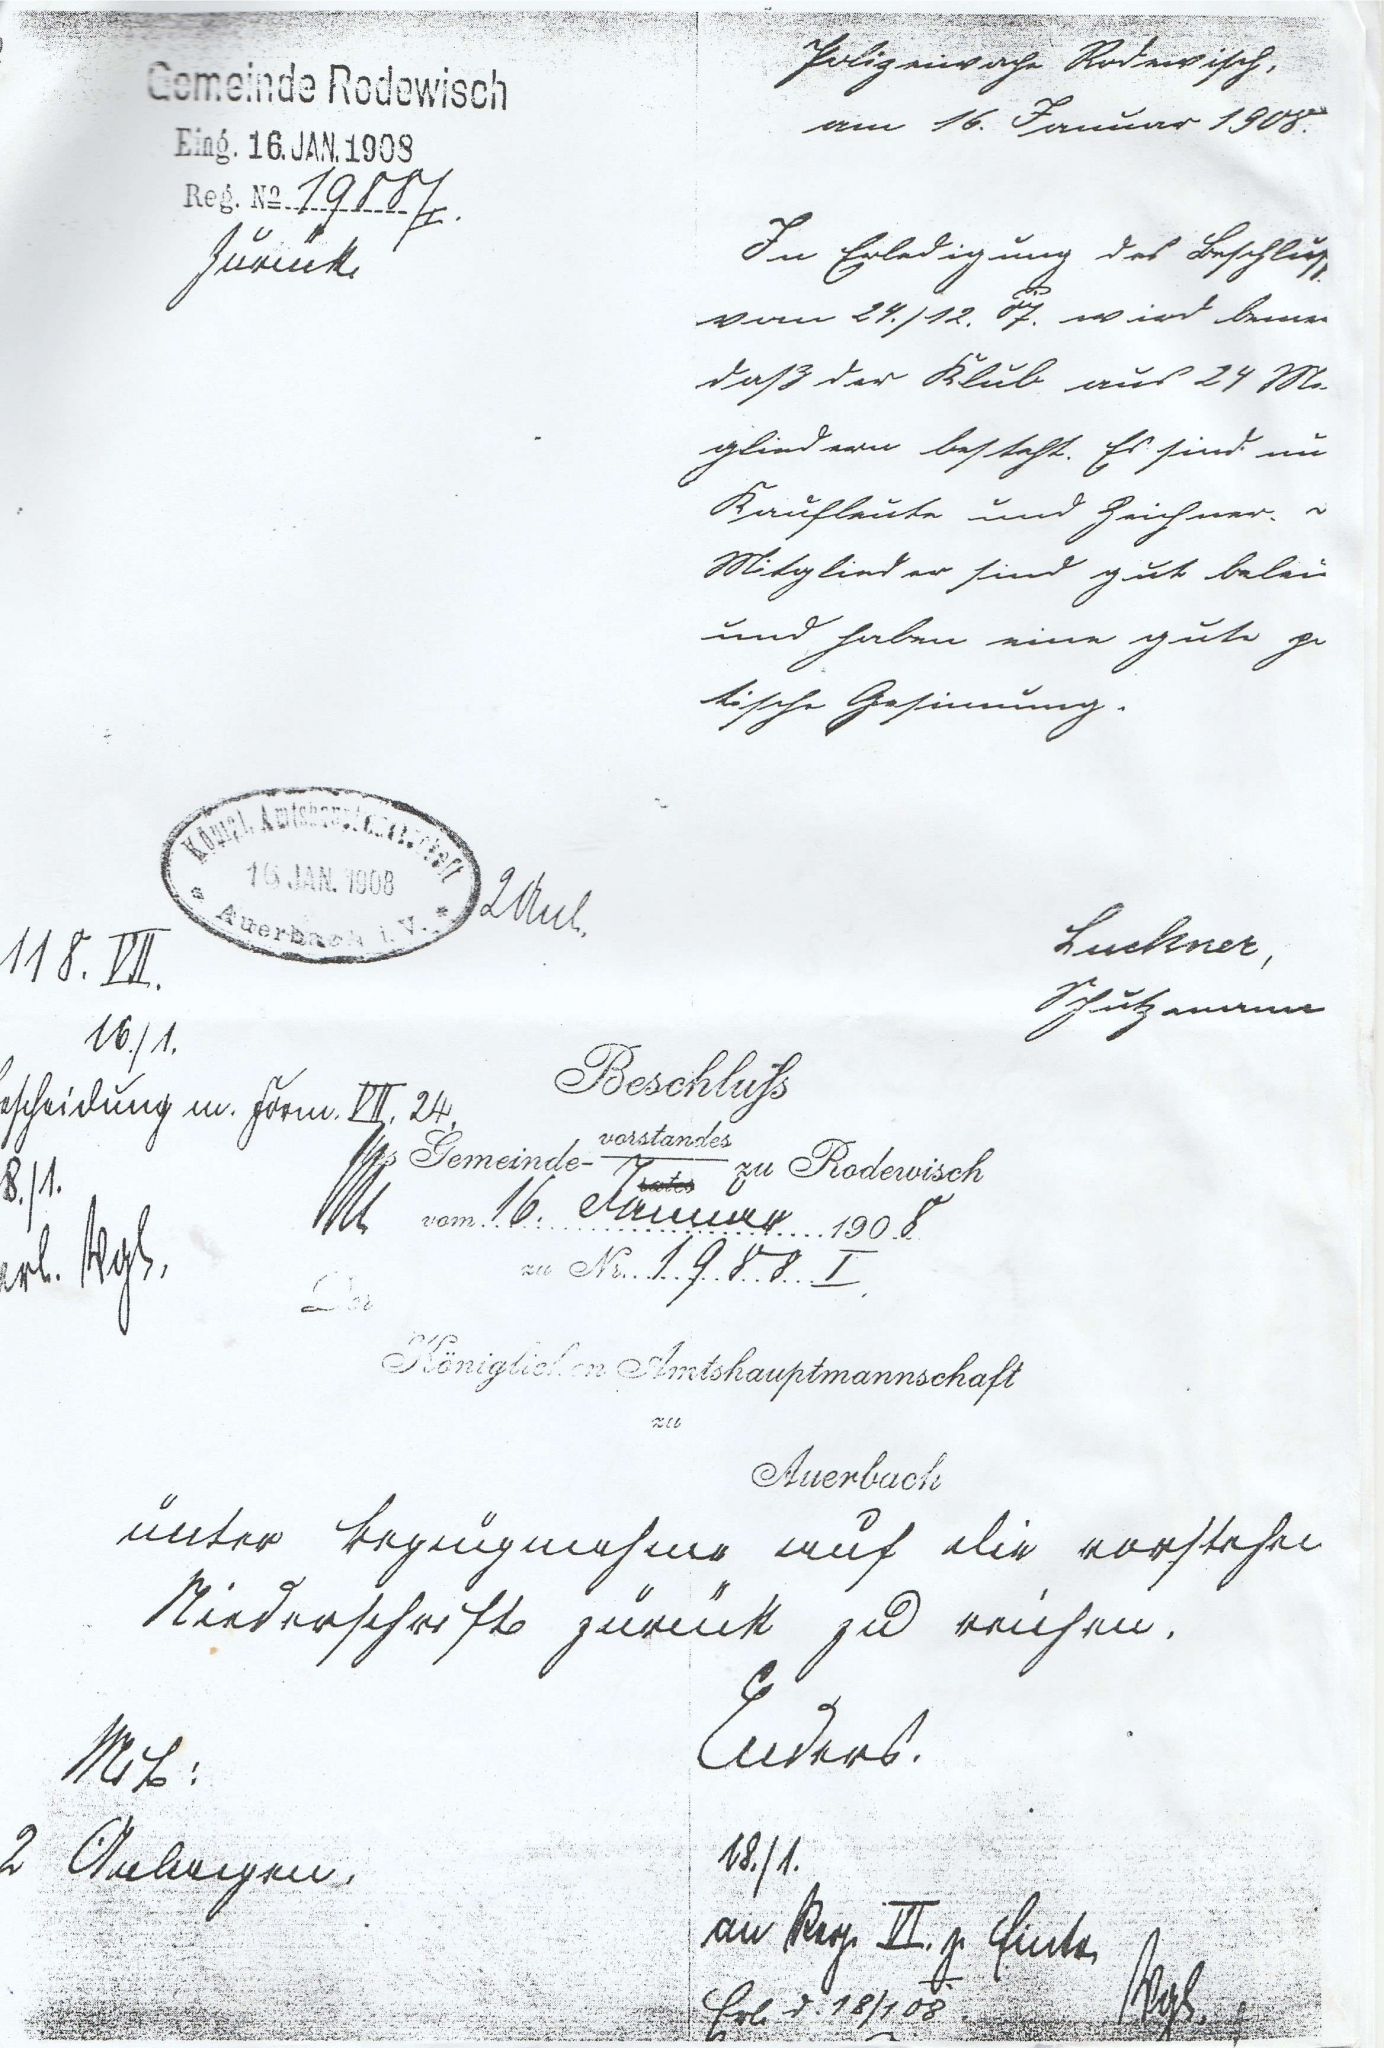 Gemeinde Rodewisch
Eing. 16. JAN. 1908
Reg. No 1988/I.
Zurück.
Polizeiwache Rodewisch,
am 16. Januar 1908.
In Erledigung des Beschluss
vom 24./12. 07. wird bemer
daß der Klub aus 24 Mi
gliedern besteht. Es sind nu
Kaufleute und Zeichner.
Mitglieder sind gut beleu
und haben eine gute po
tische Gesinnung.
Luckner,
Schutzmann
Königl. Amtshauptmannschaft
16 JAN. 1908
Auerbach i. V.
2 Anl.
118. VII.
16./1.
escheidung m. Form. VII. 24.
8./1.
Beschluß
des Gemeinde-vorstandes zu Rodewisch
rates
vom 16. Januar 1908
zu Nr. 1988 I.
Der
Königlichen Amtshauptmannschaft
zu
Auerbach
unter Bezugnahme auf die vorstehen
Niederschrift zurück zu reichen.
Enders.
Mit:
2 Anlagen.
18./1.
an Reg. VI. z.
Erl. d. 18/1 08.